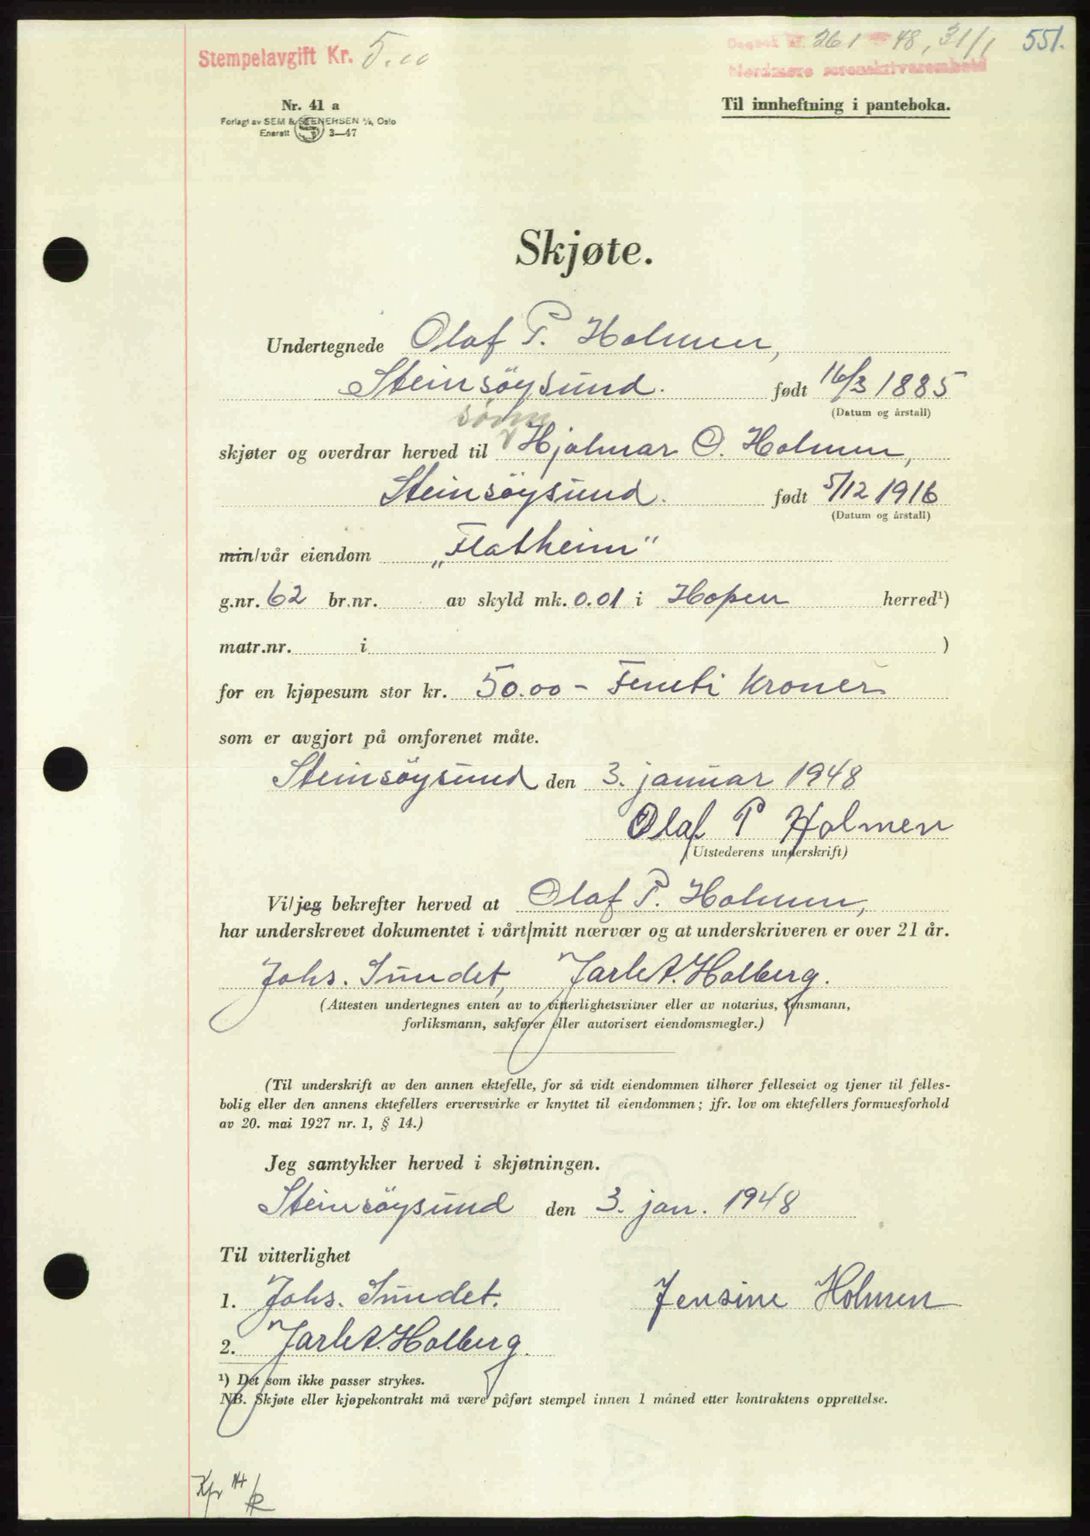 Stempelavgift Kr. 5.00
Dagbok nr. 261 - 48, 31/1 551.
Nordmøre sorenskriverembete
Nr. 41 a
Forlagt av SEM & STENERSEN A/S, Oslo
Enerett 3—47
Til innheftning i panteboka.
Skjøte.
Undertegnede Olaf P. Holmen,
Steinsöysund. født 16/3 1885
(Datum og årstall)
sønn
skjøter og overdrar herved til Hjalmar O. Holmen,
Steinsöysund. født 5/12 1916
(Datum og årstall)
min/vår eiendom „Flatheim"
g.nr. 62 br.nr. av skyld mk. 0.01 i Hopen herred¹)
matr.nr. i )
for en kjøpesum stor kr. 50.00 - Femti Kroner
som er avgjort på omforenet måte.
Steinsöysund den 3. januar 1948
Olaf P Holmen
(Utstederens underskrift)
Vi/jeg bekrefter herved at Olaf P. Holmen,
har underskrevet dokumentet i vårt/mitt nærvær og at underskriveren er over 21 år.
Johs. Sundet, Jarle A. Holberg.
(Attesten undertegnes enten av to vitterlighetsvitner eller av notarius, lensmann,
forliksmann, sakfører eller autorisert eiendomsmegler.)
(Til underskrift av den annen ektefelle, for så vidt eiendommen tilhører felleseiet og tjener til felles-
bolig eller den annens ektefellers ervervsvirke er knyttet til eiendommen; jfr. lov om ektefellers formuesforhold
av 20. mai 1927 nr. 1, § 14.)
Jeg samtykker herved i skjøtningen.
Steinsöysund den 3. jan. 1948
Til vitterlighet
1. Johs. Sundet. Jensine Holmen
2. Jarle A. Holberg.
¹) Det som ikke passer strykes.
NB. Skjøte eller kjøpekontrakt må være påført stempel innen 1 måned etter kontraktens opprettelse.